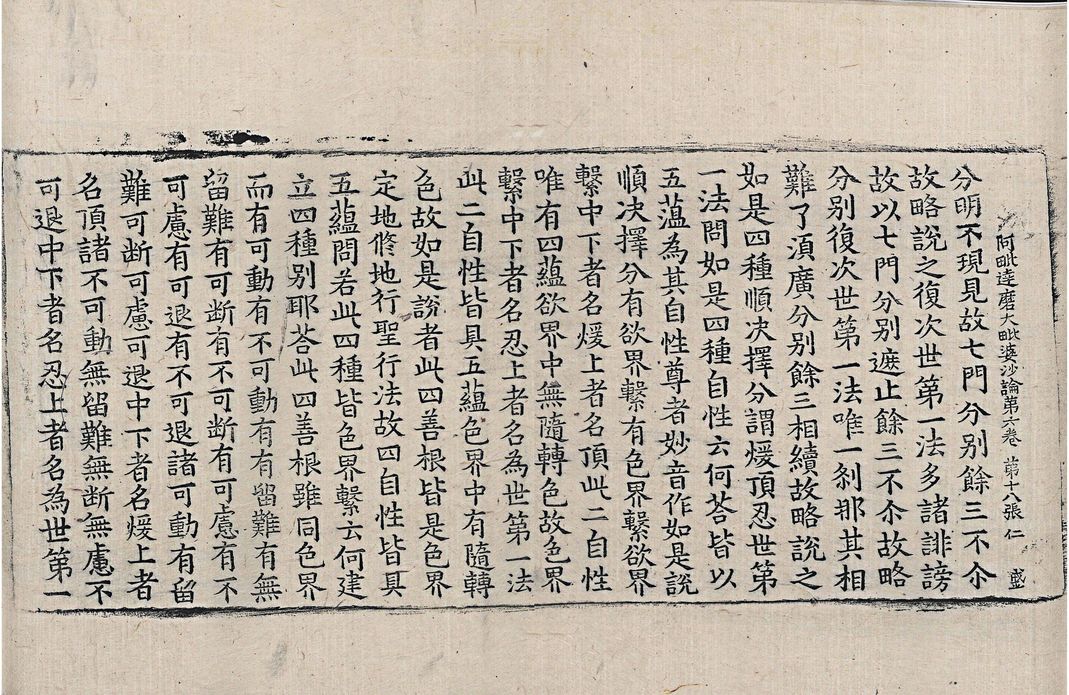 阿毗達磨大毗婆沙論第六卷 第十八張 仁 盛
分明不現見故七門分別餘三不尒
故略說之復次世第一法多諸誹謗
故以七門分別遮止餘三不尒故略
分別復次世第一法唯一刹那其相
難了湏廣分別餘三相續故略說之
如是四種順決擇分謂煖頂忍世第
一法問如是四種自性云何荅皆以
五蕰為其自性尊者妙音作如是說
順決擇分有欲界繫有色界繫欲界
繫中下者名煖上者名頂此二自性
唯有四蘊欲界中無隨轉色故色界
繫中下者名忍上者名為世第一法
此二自性皆具五蘊色界中有隨轉
色故如是說者此四善根皆是色界
定地脩地行聖行法故四自性皆具
五蘊問若此四種皆色界繫云何建
立四種別耶荅此四善根雖同色界
而有可動有不可動有有留難有無
留難有可断有不可断有可慮有不
可慮有可退有不可退諸可動有留
難可断可慮可退中下者名煖上者
名頂諸不可動無留難無断無慮不
可退中下者名忍上者名為世第一